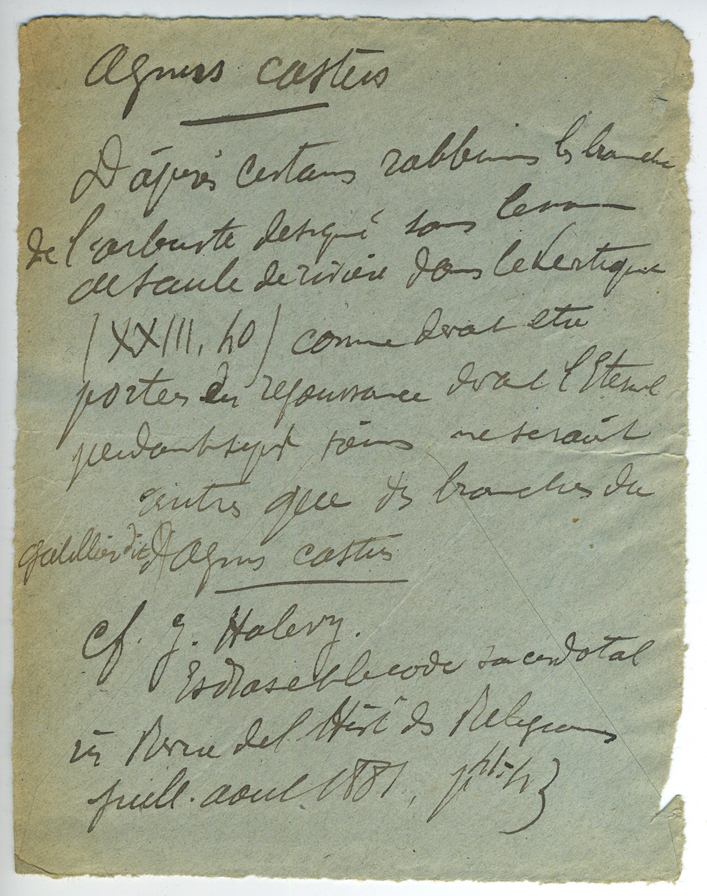 Agnus castus
D'après certains rabbins les branches
de l'arbuste désigné sous le nom
de saule de rivière dans le Lévitique
(XXIII, 40) comme devant être
portées en réjouissance devant l'Eternel
pendant sept jours ne seraient
autres que des branches du
gatillier dit d'Agnus castus
cf. J. Halévy.
Esdras et le code sacerdotal
in Revue de l'Hist des Religions
juill. aout. 1881,